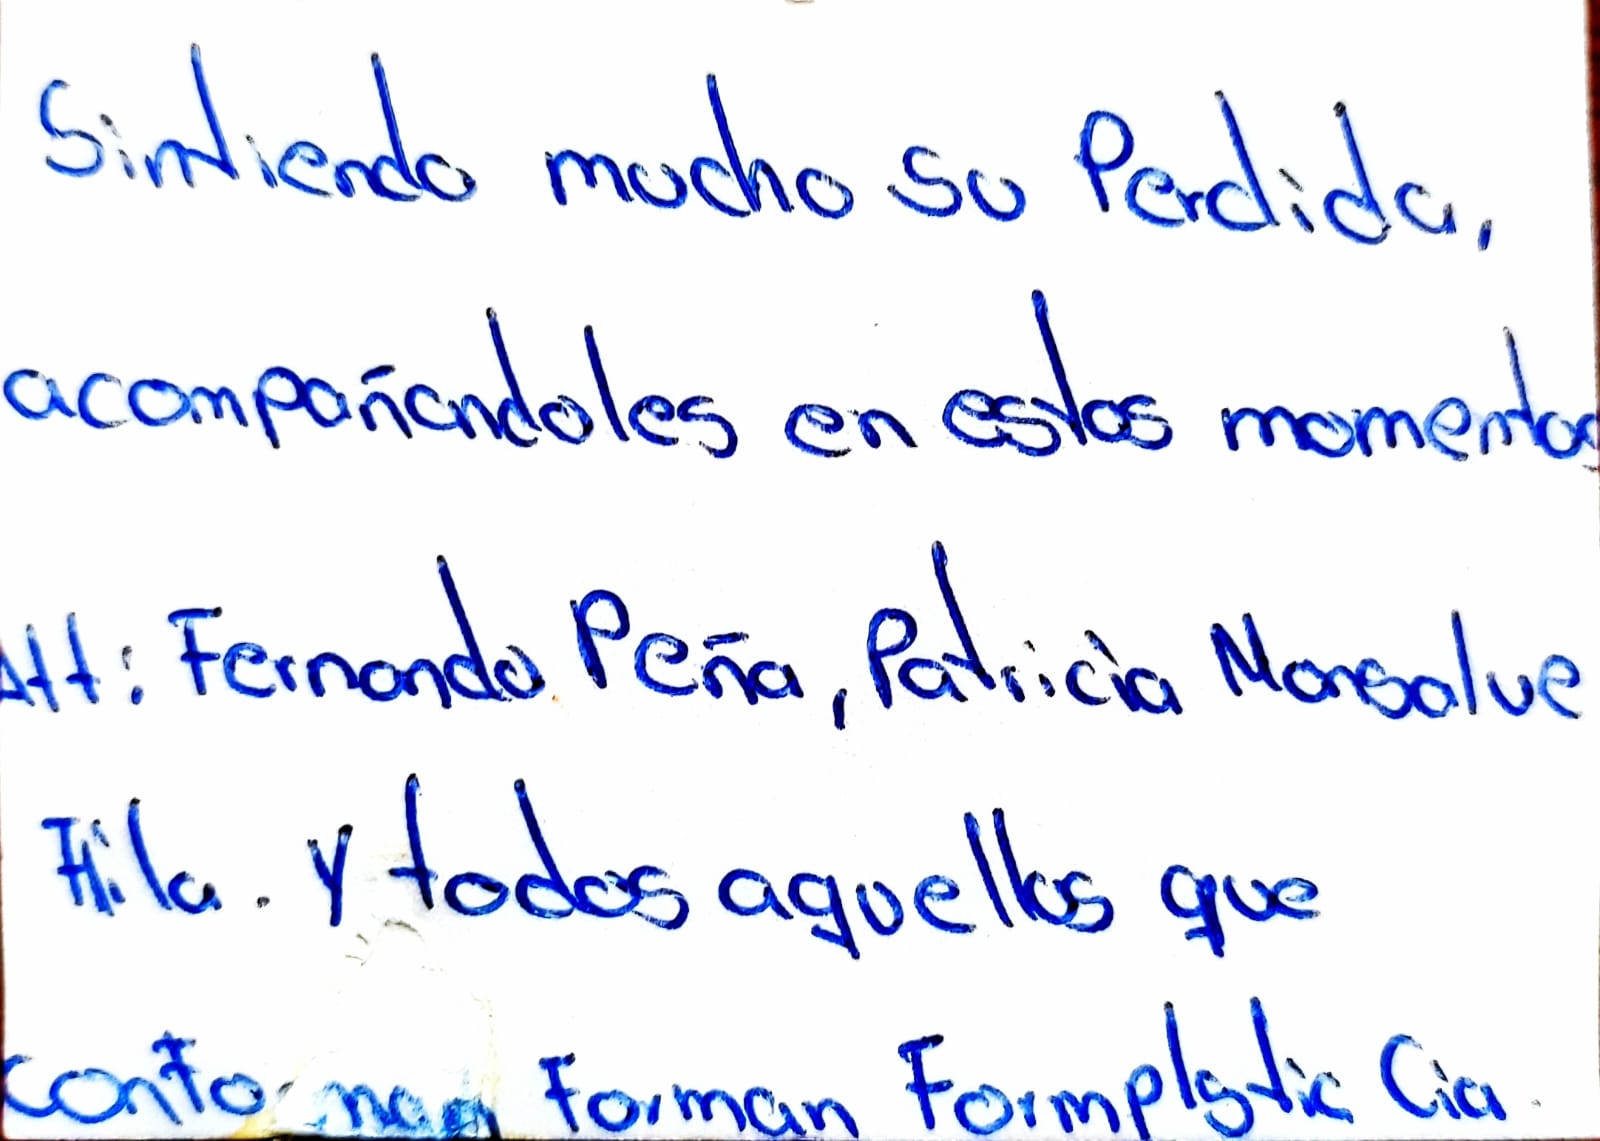 Sintiendo mucho su Perdida,
acompañandoles en estos momentos
Att: Fernando Peña, Patricia Monsalve
Y todos aquellos que
Forman Formplastic Cia.